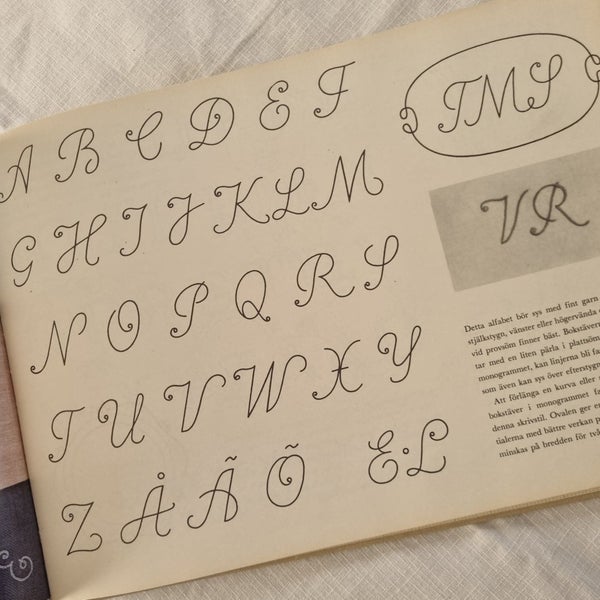 A B C D E F
G H I J K L M
N O P Q R S
T U V W X Y
Z Å Ã Õ E·L
TMS
VR
Detta alfabet bör sys med fint garn
stjälkstygn, vänster eller högervända
vid provsöm finner bäst.
tar med en liten pärla i
monogrammet, kan linjerna bli
som även kan sys över
Att förlänga en kurva eller
bokstäver i monogrammet
denna skrivstil. Ovalen ger
tialerna med bättre verkan
minskas på bredden för